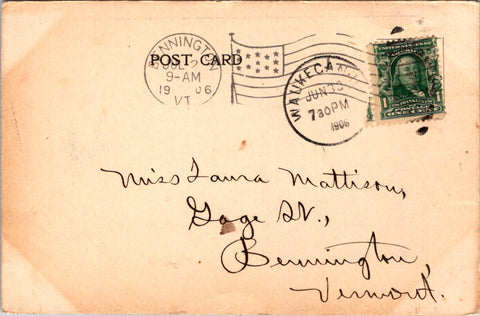 BENNINGTON
9-AM
19 06
VT.
POST CARD
WAUKEGAN
JUN
730PM
1906
1
Miss Laura Mattison,
Gage St.,
Bennington,
Vermont.